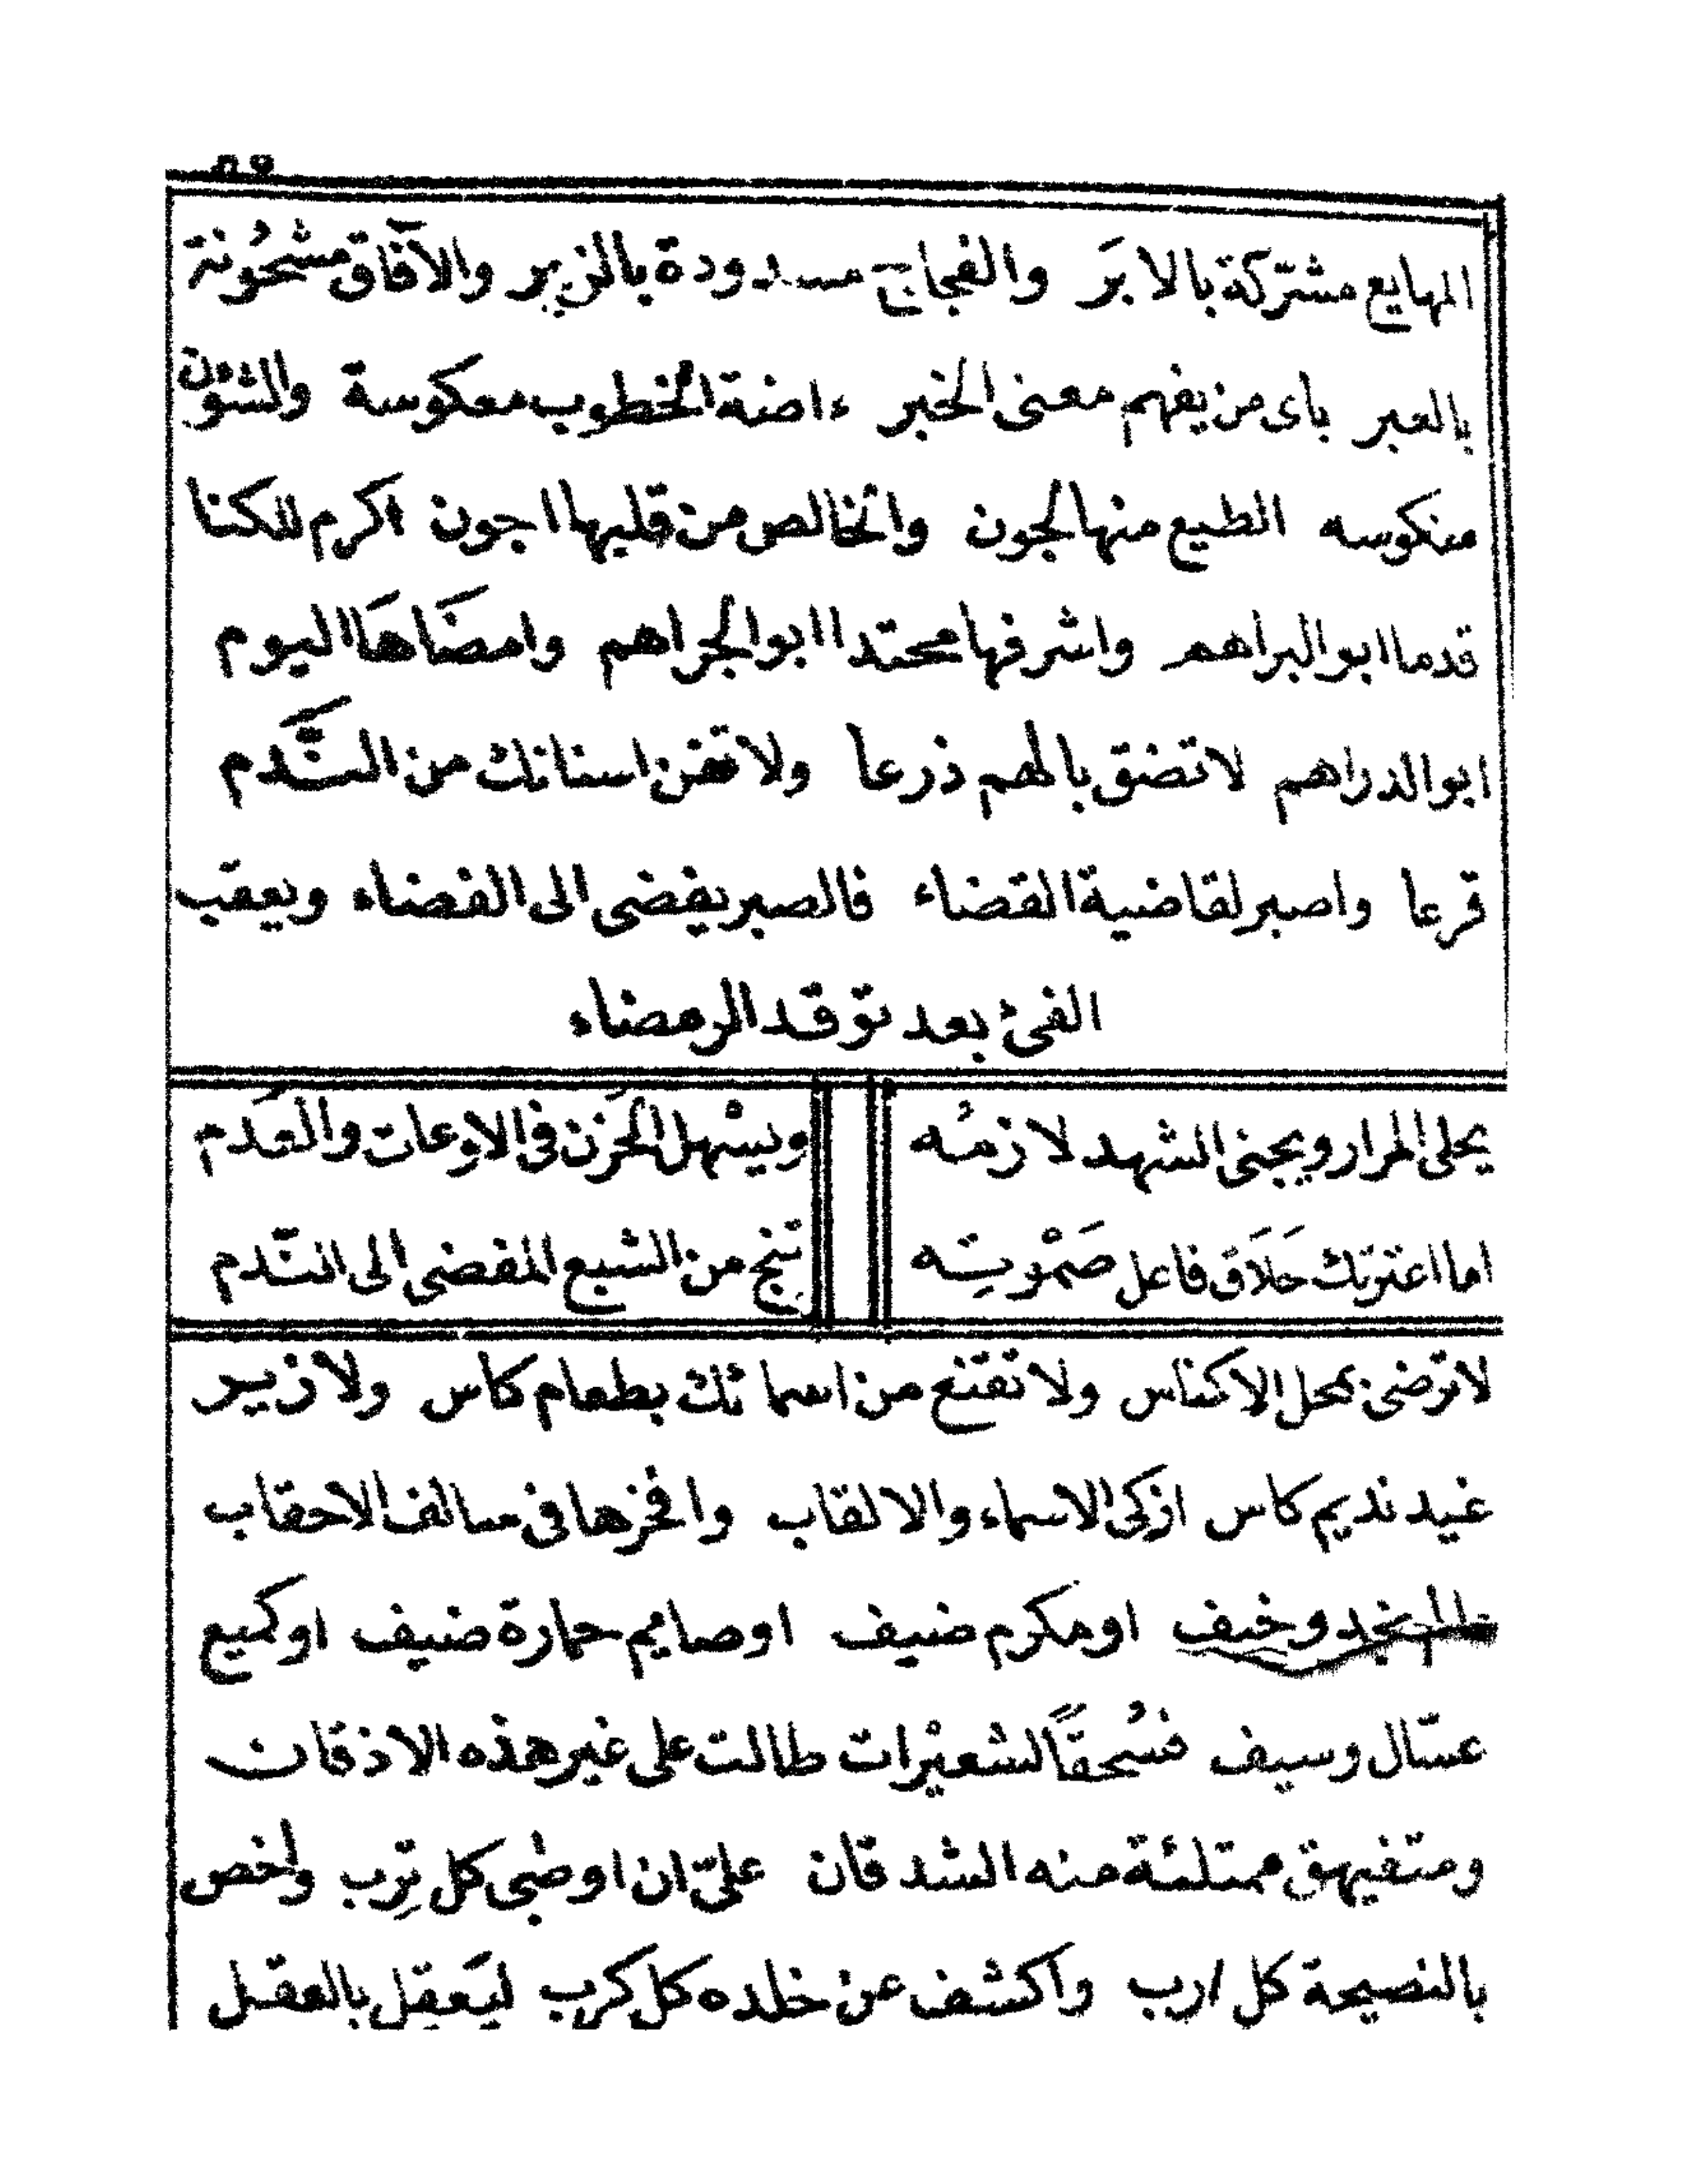 المهايع مشتركة بالابَر والفجاج مسدودة بالزبر والآفاق مشحُونة
بالعبر باى من يفهم معنى الخبر ءاضنة الخطوب معكوسة والشؤن
منكوسه الطيع منها لجون والخالص من قليبها اجون اكرم للكنا
قدما ابو البراهم واشرفها محتدا ابو الجراهم وامضَاهَا اليوم
ابو الدراهم لا تضق بالهم ذرعا ولا تفن اسنانك من النَّدم
قرعا واصبر لقاضية القضاء فالصبر يفضى الى الفضاء ويعقب
الفئ بعد توقد الرمضاء
يحلى المرار ويجنى الشهد لازمُه ويسْهل الحَزن فى الاوعات والعَدم
اما اعترتك حَلاَق فاعل صَهْويّه تنج من الشبع المفضى الى النّدم
لا ترضى بمحل الاكناس ولا تقنع من اسمائك بطعام كاس ولا زير
غيد نديم كاس ازكى الاسماء والالقاب وافخرها فى سالف الاحقاب
نجد وخيف او مكرم ضيف او صايم حمارة ضيف او كميع
عسّال وسيف فسُحقًا لشعيْرات طالت على غير هذه الاذقان
ومتفيهق ممتلئة منه الشدقان علىّ ان اوطبى كل تِرب واخص
بالنصيحة كل ارب واكشف عن خلده كل كرب ليَعقِل بالعقل